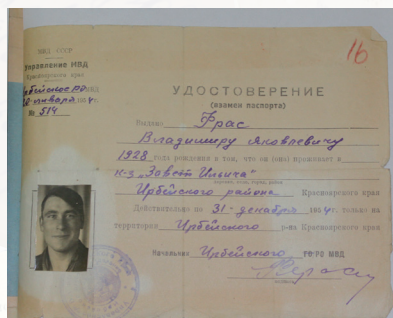 МВД СССР
Управление МВД
Красноярского края
Ирбейское РО МВД
20 января 1954 г.
№ 514
16
УДОСТОВЕРЕНИЕ
(взамен паспорта)
Выдано Фрас
Владимиру Яковлевичу
1928 года рождения в том, что он (она) проживает в
к-з „Завет Ильича"
Ирбейского района Красноярского края
Действительно по 31-декабря 1954 г. только на
территории Ирбейского р-на Красноярского края
Начальник Ирбейского РО МВД